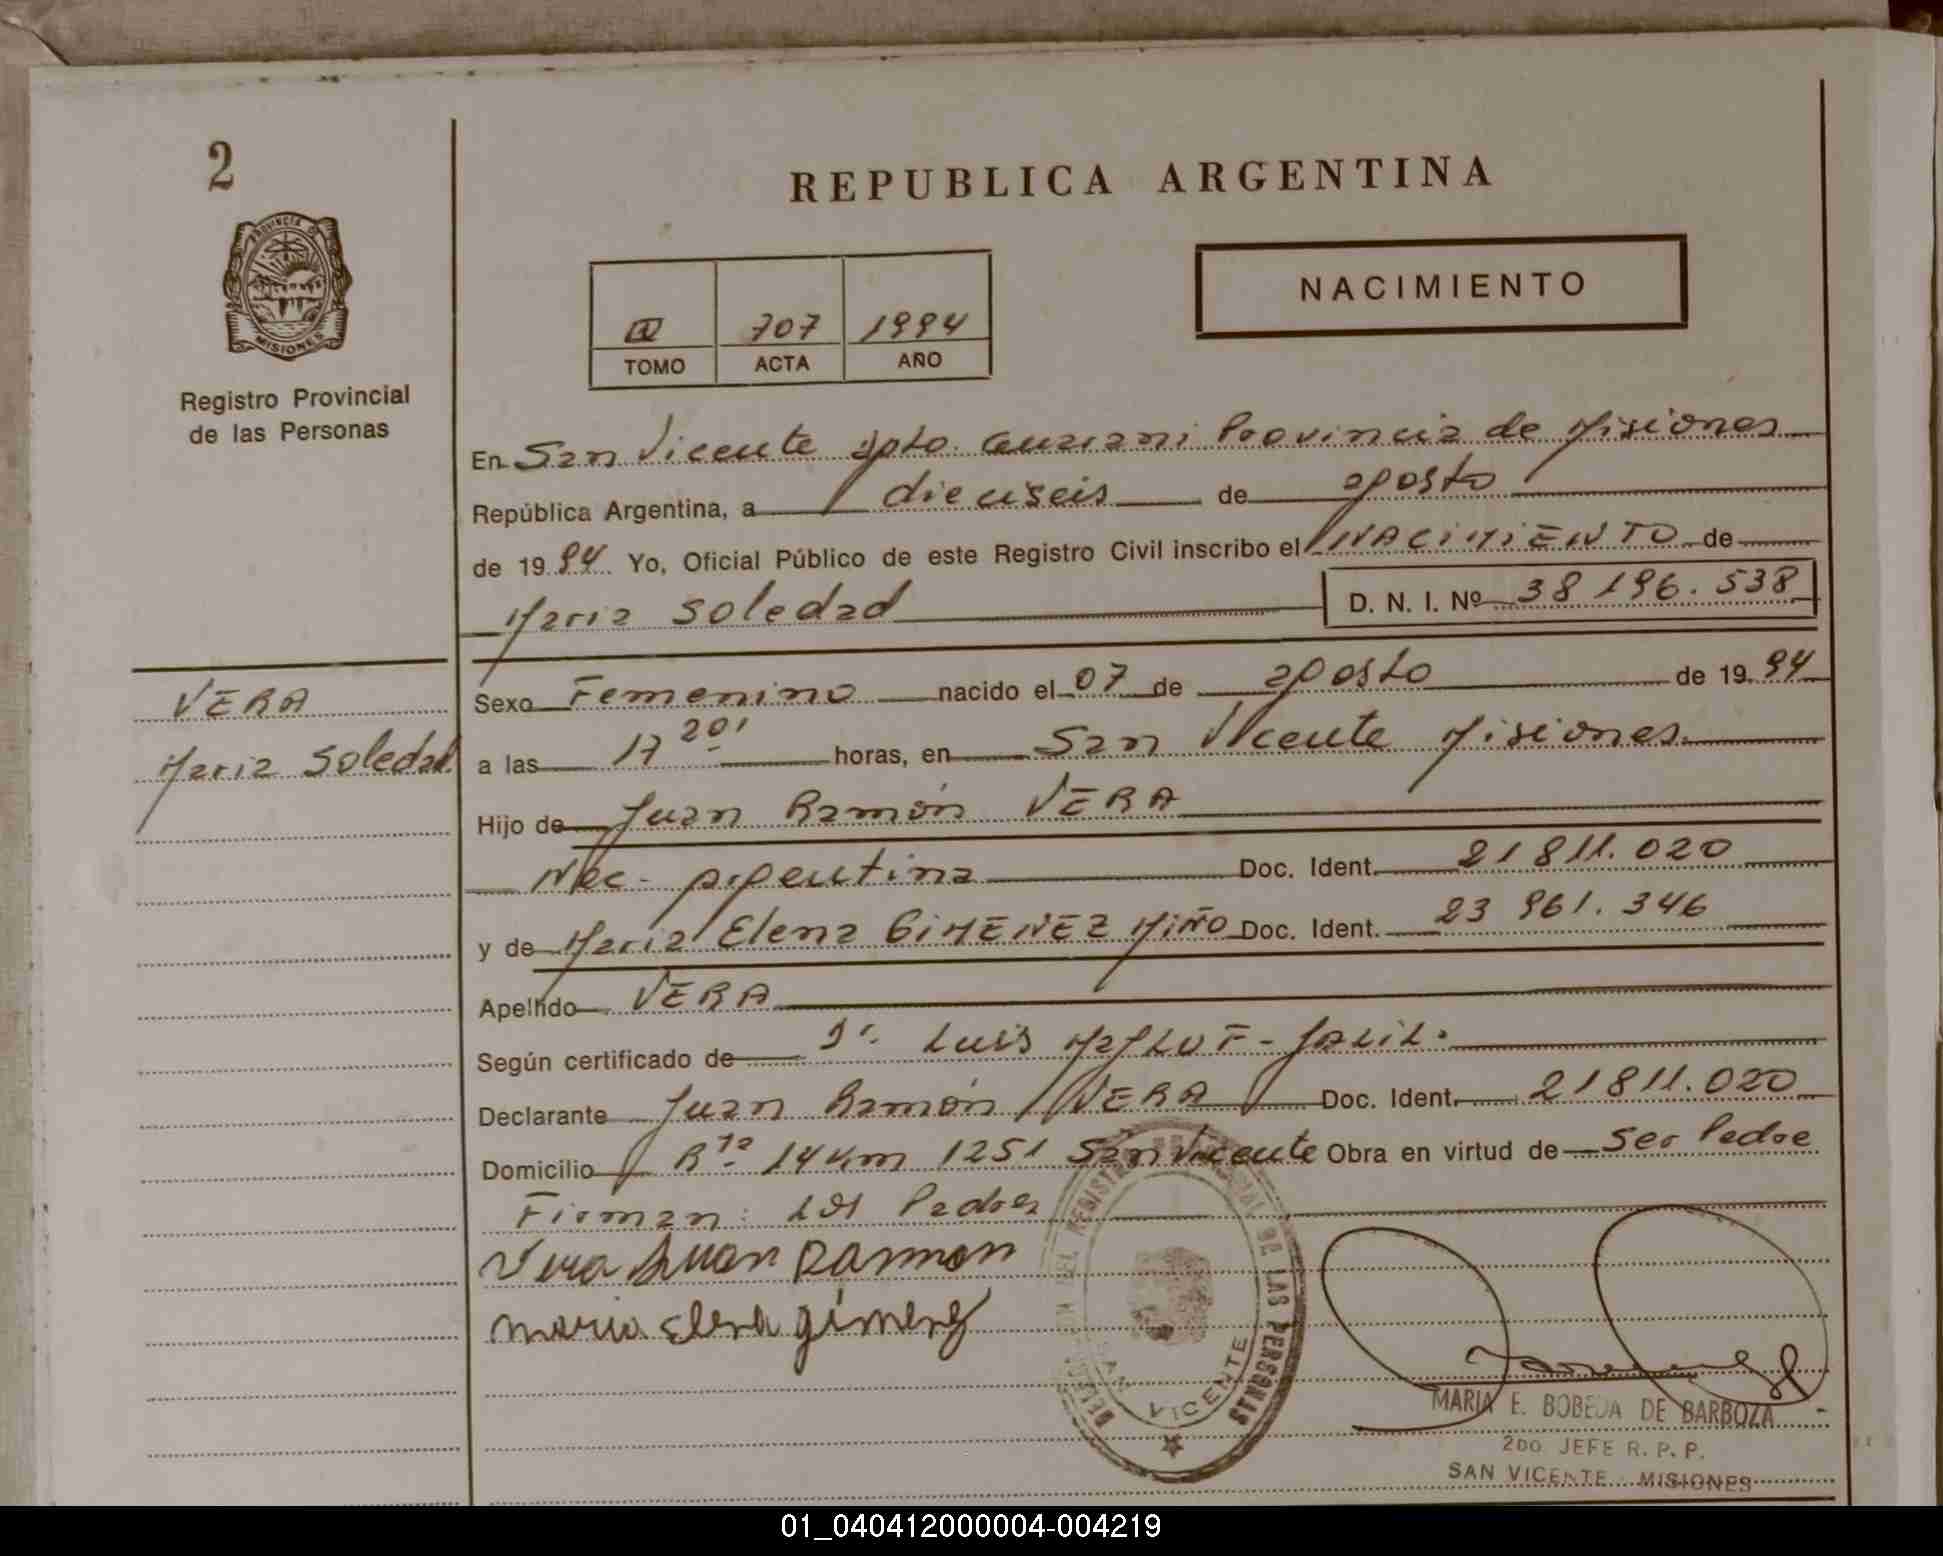 2
REPUBLICA ARGENTINA
PROVINCIA DE
MISIONES
Registro Provincial
de las Personas
NACIMIENTO
707 1994
TOMO ACTA AÑO
En San Vicente Dpto. Guarani Provincia de Misiones
República Argentina, a dieciseis de agosto
de 1994 Yo, Oficial Público de este Registro Civil inscribo el NACIMIENTO de
Maria Soledad D. N. I. Nº 38 196.538
VERA
Maria Soledad
Sexo Femenino nacido el 07 de agosto de 1994
a las 17 20' horas, en San Vicente Misiones
Hijo de Juan Ramón VERA
Nac. Argentina Doc. Ident. 21 811.020
y de Maria Elena GIMENEZ MIÑO Doc. Ident. 23 961.346
Apellido VERA
Según certificado de Dr. Luis
Declarante Juan Ramón VERA Doc. Ident. 21811.020
Domicilio Rta 14 Km 1251 San Vicente Obra en virtud de Ser Padre
Firman: los Padres
Vera Juan Ramon
maria elena gimenez
DELEGACION DEL REGISTRO PROVINCIAL DE LAS PERSONAS
SAN VICENTE
MARIA E. BOBEDA DE BARBOZA
2DO JEFE R. P. P.
SAN VICENTE MISIONES
01_040412000004-004219